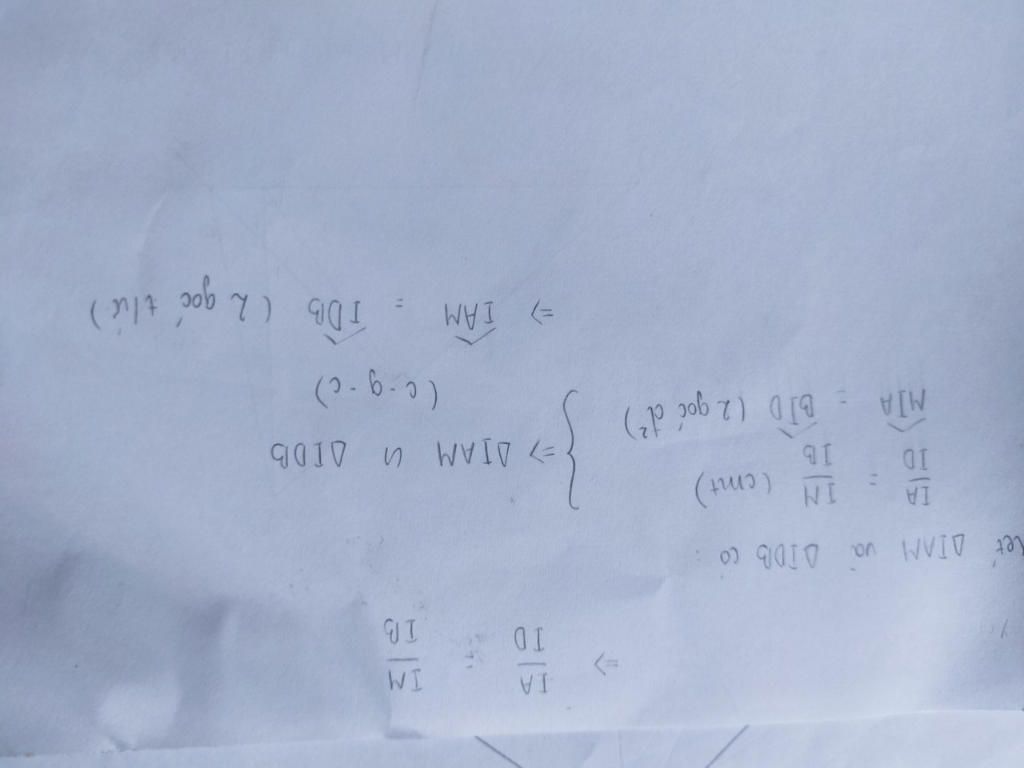 => IA/ID = IM/IB
Xét ΔIAM và ΔIDB có:
IA/ID = IM/IB (cmt)
MIA = BID (2 góc đ²)
} => ΔIAM ∽ ΔIDB
(c-g-c)
=> IAM = IDB (2 góc t/ứ)